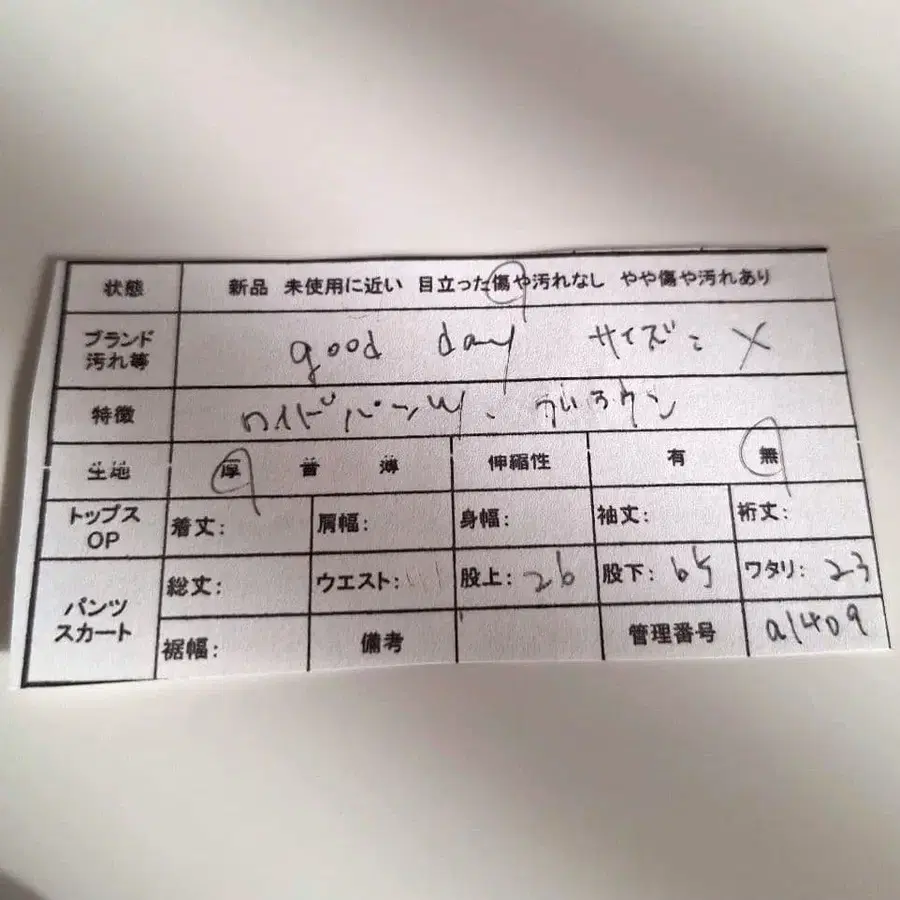 状態 新品 未使用に近い 目立った傷や汚れなし やや傷や汚れあり
ブランド
汚れ等 good day サイズ:
特徴 ワイドパンツ、
生地 厚 普 薄 伸縮性 有 無
トップス
OP 着丈: 肩幅: 身幅: 袖丈: 裄丈:
パンツ
スカート 総丈: ウエスト: 股上: 26 股下: 65 ワタリ: 23
裾幅: 備考 管理番号 a1409